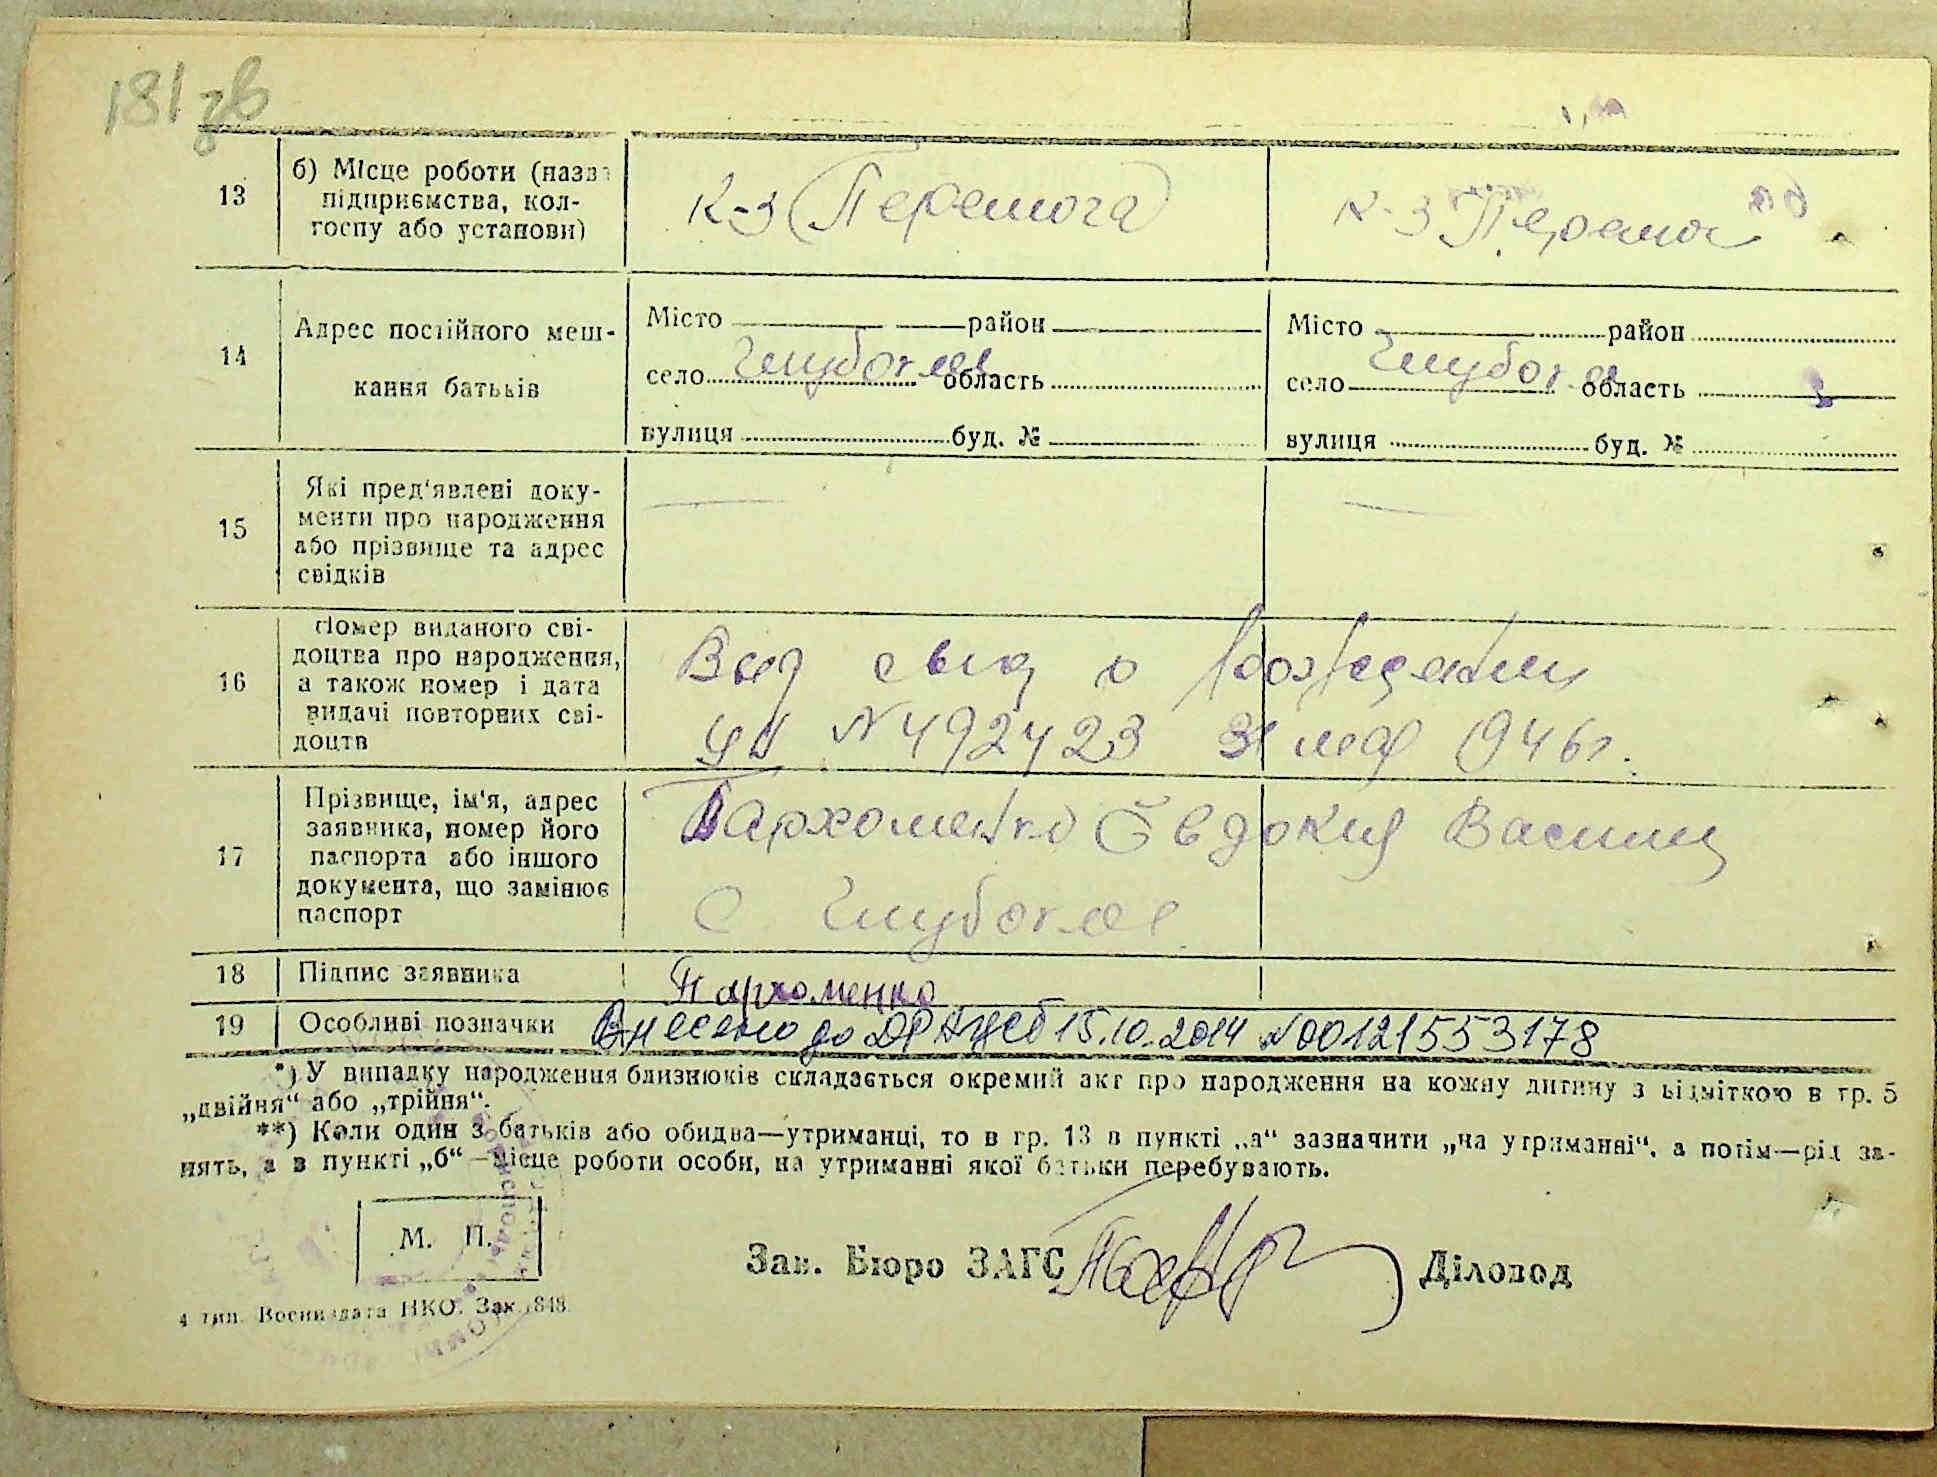 181 зв
13
б) Місце роботи (назва
підприємства, кол-
госпу або установи)
К-з (Перемога)
К-з "Перемога"
14
Адрес постійного меш-
кання батьків
Місто район
село Глубокое область
вулиця буд. №
Місто район
село Глубокое область
вулиця буд. №
15
Які пред'явлені доку-
менти про народження
або прізвище та адрес
свідків
16
Номер виданого сві-
доцтва про народження,
а також номер і дата
видачі повторних сві-
доцтв
Выд свид о рождении
№ 492423 31 мая 1946 г.
17
Прізвище, ім'я, адрес
заявника, номер його
паспорта або іншого
документа, що замінює
паспорт
Пархоменко Евдокия Васил
с Глубокое
18
Підпис заявника
Пархоменко
19
Особливі позначки
Внесено до ДРАЦСГ 15.10.2014 №00121553178
*) У випадку народження близнюків складається окремий акт про народження на кожну дитину з відміткою в гр. 5
„двійня“ або „трійня“.
**) Коли один з батьків або обидва—утриманці, то в гр. 13 в пункті „а“ зазначити „на утриманні“, а потім—рід за-
нять, а в пункті „б“—місце роботи особи, на утриманні якої батьки перебувають.
М. П.
Зав. Бюро ЗАГС
Діловод
4 тип. Воениздата НКО. Зак. 1848.